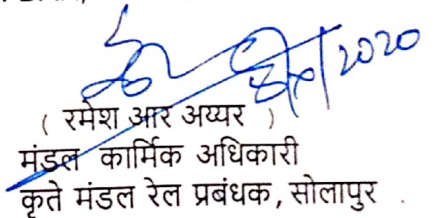 2020
( रमेश आर अय्यर )
मंडल कार्मिक अधिकारी
कृते मंडल रेल प्रबंधक, सोलापुर .